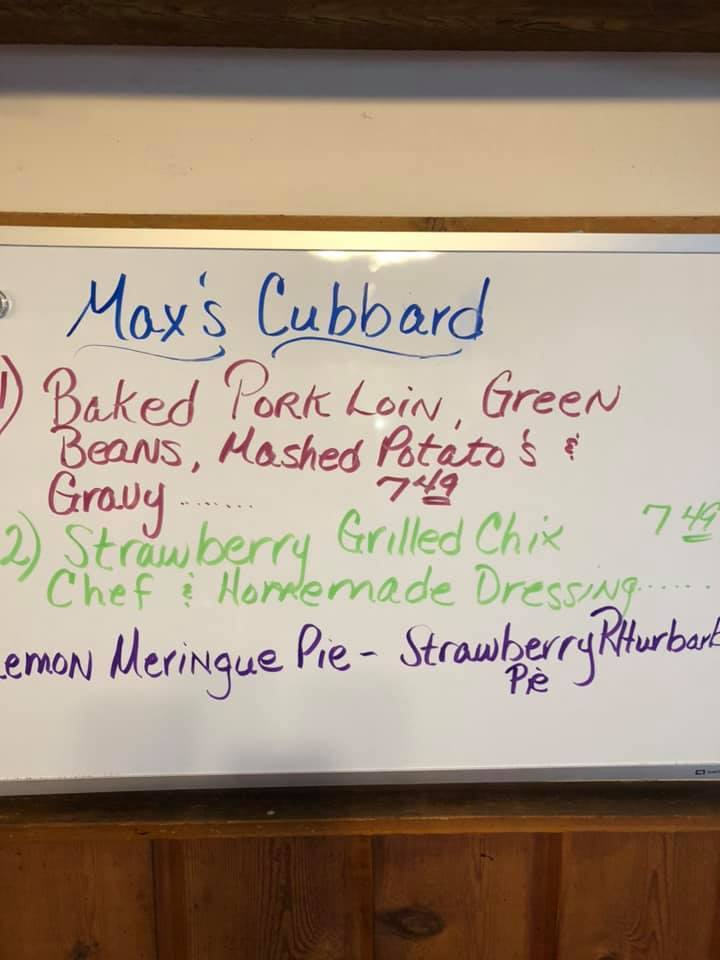 Max's Cubbard
1) Baked Pork Loin, Green
Beans, Mashed Potato's &
Gravy ....... 7 49
2) Strawberry Grilled Chix 7 49
Chef & Homemade Dressing......
Lemon Meringue Pie - Strawberry RHurbarb
Pie